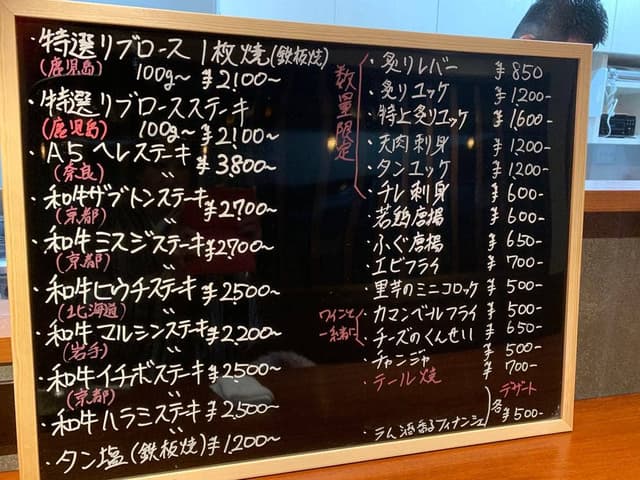 ・特選リブロース1枚焼(鉄板焼)
(鹿児島) 100g～ ¥2,100～
・特選リブロースステーキ
(鹿児島) 100g～ ¥2,100～
・A5ヘレステーキ ¥3,800～
(奈良) 〃
・和牛ザブトンステーキ ¥2,700～
(京都) 〃
・和牛ミスジステーキ ¥2,700～
(京都) 〃
・和牛ヒウチステーキ ¥2,500～
(北海道) 〃
・和牛マルシンステーキ ¥2,200～
(岩手) 〃
・和牛イチボステーキ ¥2,500～
(京都) 〃
・和牛ハラミステーキ ¥2,500～
・タン塩(鉄板焼) ¥1,200～
数量限定
・炙りレバー ¥850
・炙りユッケ ¥1,200-
・特上炙りユッケ ¥1,600-
・天肉刺身 ¥1,200-
・タンユッケ ¥1,200-
・チレ刺身 ¥600-
・若鶏唐揚 ¥600-
・ふぐ唐揚 ¥650-
・エビフライ ¥700-
・里芋のミニコロッケ ¥500-
ワインと一緒に
・カマンベールフライ ¥500-
・チーズのくんせい ¥650-
・チャンジャ ¥500-
・テール焼 ¥700-
デザート
・ラム酒香るフィナンシェ 各¥500-